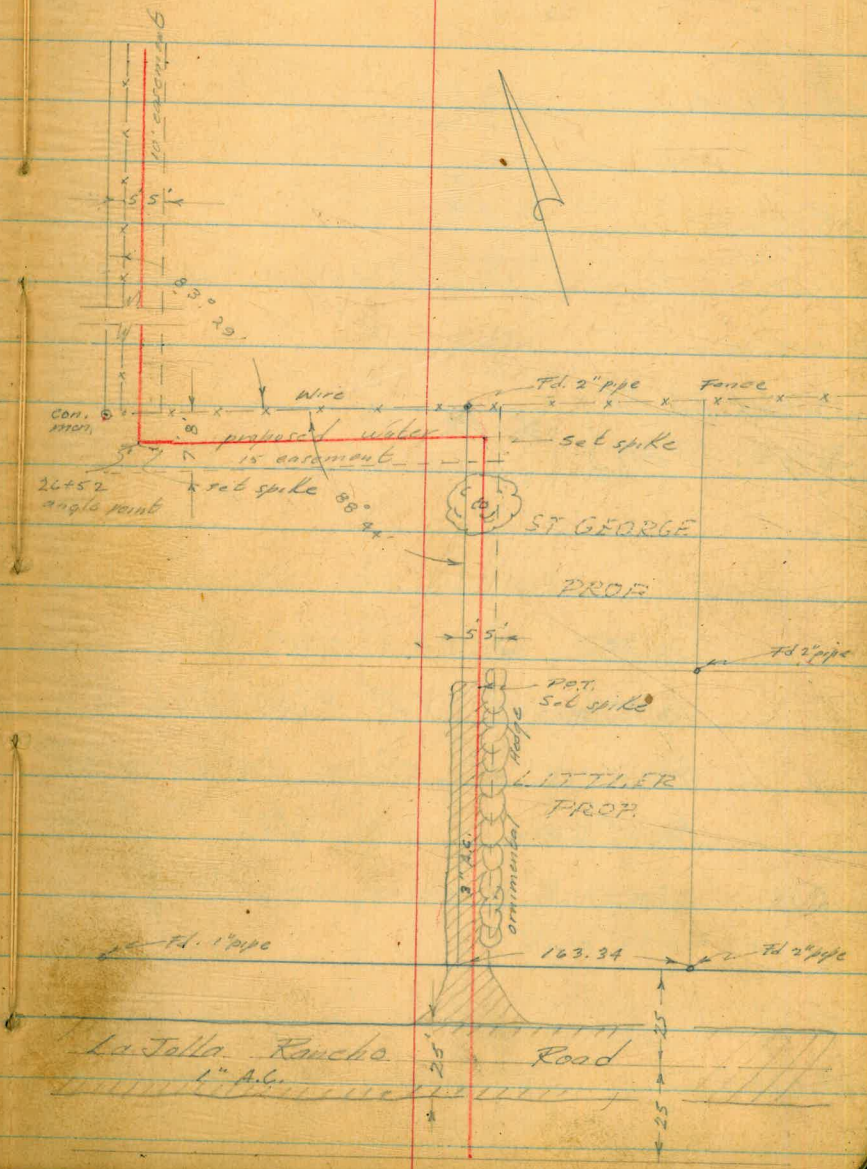 10' easement
5' 5'
83° 29
Wire
Fd. 2" pipe
Fence
con.
mon.
7.8'
proposed water
15 easement
set spike
26+52
angle point
set spike
88° 44
ST GEORGE
PROP.
5' 5'
Fd 2" pipe
P.O.T.
Set spike
Hedge
ornimental
LITTLER
PROP.
3" A.C.
Fd. 1" pipe
163.34
Fd 2" pipe
La Jolla Rancho Road
1" A.C.
25'
25
25